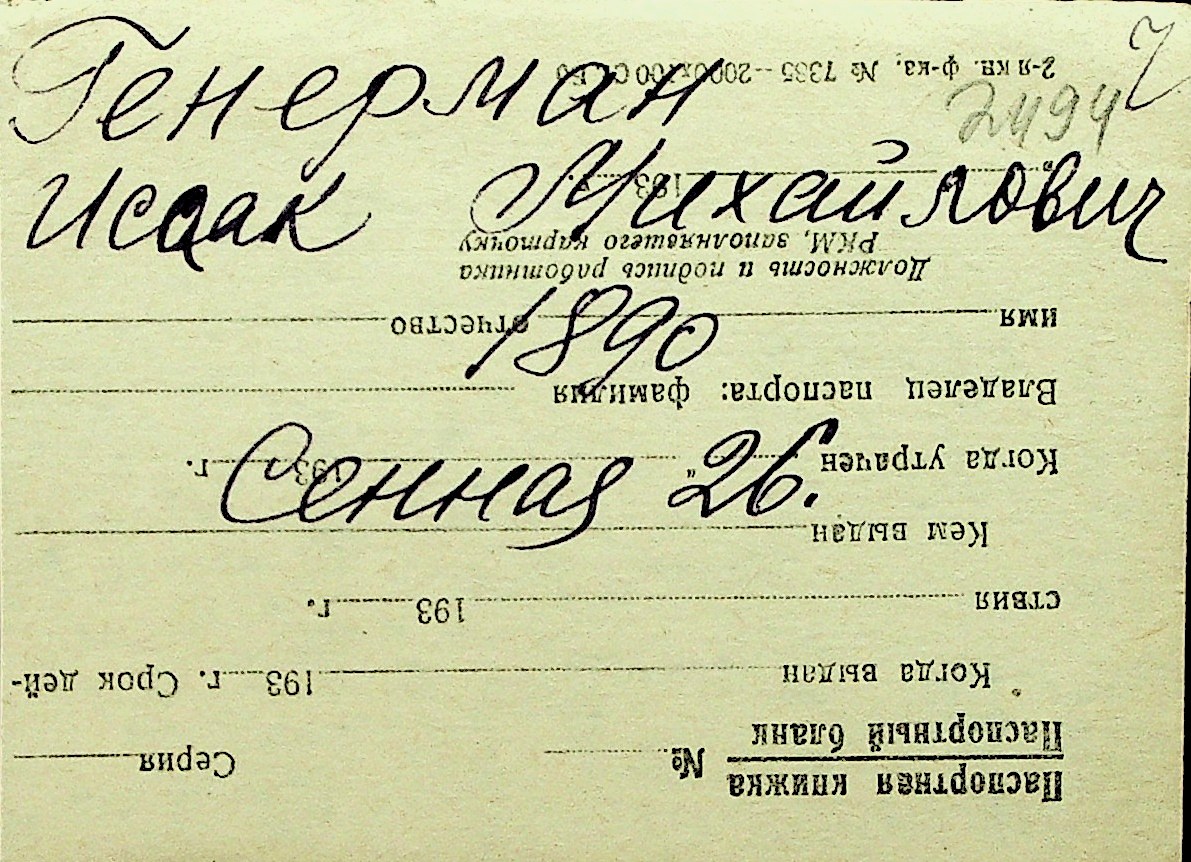 Генерман
Исаак Михайлович
1890
Сенная 26.
2494
Паспортная книжка
Паспортный бланк
№ Серия
Когда выдан 193 г. Срок дей-
ствия 193 г.
Кем выдан
Когда утрачен „ 193 г.
Владелец паспорта: фамилия
имя отчество
Должность и подпись работника
РКМ, заполнявшего карточку
193 г.
2-я кн. ф-ка. № 7385—2000х100